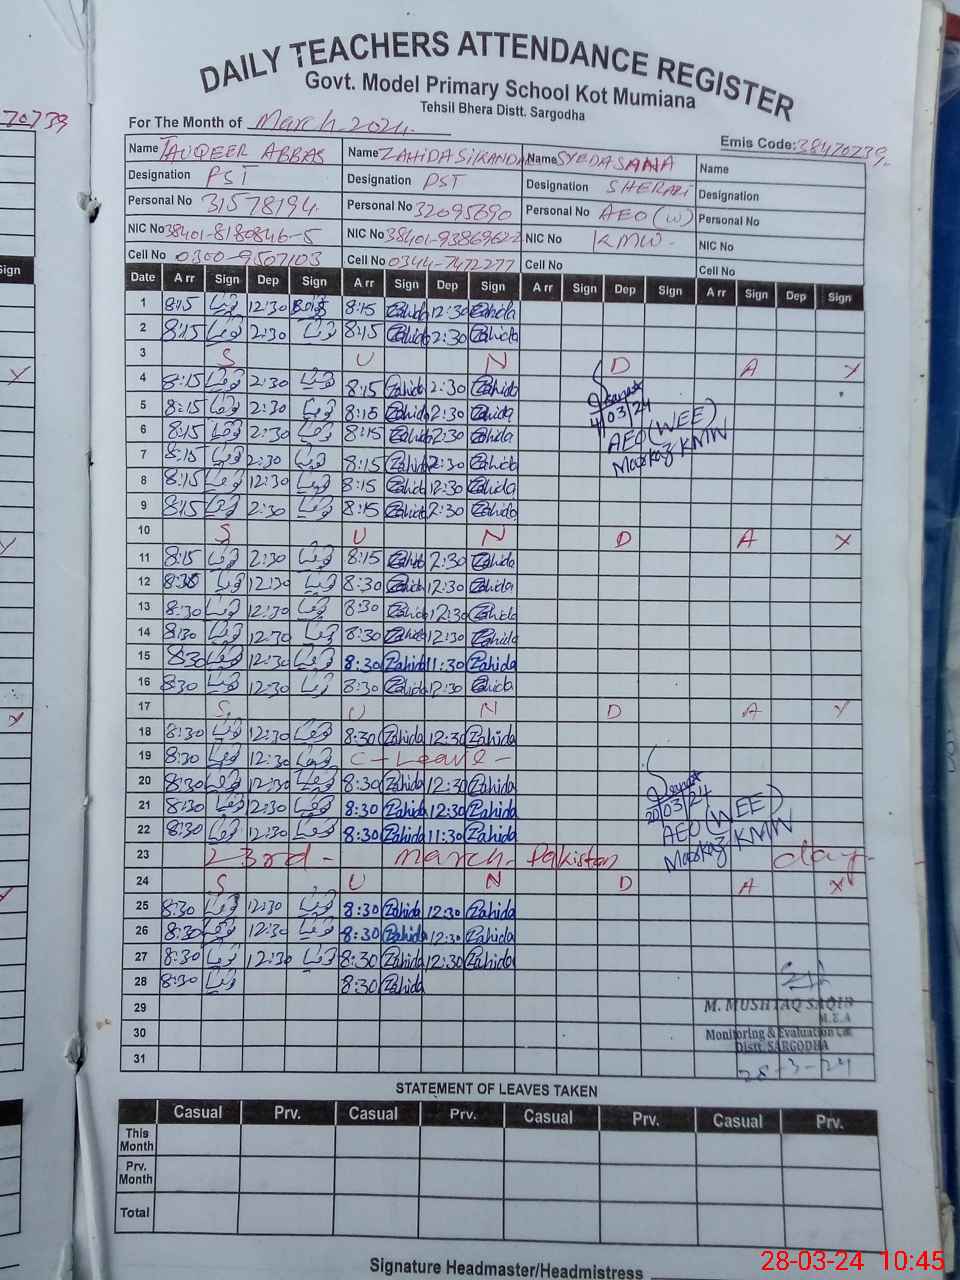 70739
DAILY TEACHERS ATTENDANCE REGISTER
Govt. Model Primary School Kot Mumiana
Tehsil Bhera Distt. Sargodha
For The Month of March 2024.
Emis Code: 38470739.
Name TAUQEER ABBAS Name ZAHIDA SIKANDA Name SYEDA SANA Name
Designation PST Designation PST Designation SHERAZI Designation
Personal No 31578194 Personal No 32095690 Personal No AEO (W) Personal No
NIC No 38401-8180846-5 NIC No 38401-9386962-2 NIC No KMW. NIC No
Cell No 0300-9507103 Cell No 0344-7472277 Cell No Cell No
Sign Date A rr Sign Dep Sign A rr Sign Dep Sign A rr Sign Dep Sign A rr Sign Dep Sign
1 8:15 12:30 8:15 Zahida 12:30 Zahida
2 8:15 2:30 8:15 Zahida 2:30 Zahida
3 S U N D A Y
4 8:15 2:30 8:15 Zahida 2:30 Zahida
5 8:15 2:30 8:15 Zahida 2:30 Zahida
4/03/24
6 8:15 2:30 8:15 Zahida 2:30 Zahida
AEO (WEE)
7 8:15 2:30 8:15 Zahida 2:30 Zahida
Markaz KMW
8 8:15 12:30 8:15 Zahida 12:30 Zahida
9 8:15 2:30 8:15 Zahida 2:30 Zahida
10 S U N D A Y
11 8:15 2:30 8:15 Zahida 2:30 Zahida
12 8:30 12:30 8:30 Zahida 12:30 Zahida
13 8:30 12:30 8:30 Zahida 12:30 Zahida
14 8:30 12:30 8:30 Zahida 12:30 Zahida
15 8:30 12:30 8:30 Zahida 11:30 Zahida
16 8:30 12:30 8:30 Zahida 12:30 Zahida
17 S U N D A Y
18 8:30 12:30 8:30 Zahida 12:30 Zahida
19 8:30 12:30 C-Leave-
20 8:30 12:30 8:30 Zahida 12:30 Zahida
20/03/24
21 8:30 12:30 8:30 Zahida 12:30 Zahida
AEO (WEE)
22 8:30 12:30 8:30 Zahida 11:30 Zahida
Markaz KMW
23 23rd - march - Pakistan day-
24 S U N D A Y
25 8:30 12:30 8:30 Zahida 12:30 Zahida
26 8:30 12:30 8:30 Zahida 12:30 Zahida
27 8:30 12:30 8:30 Zahida 12:30 Zahida
28 8:30 8:30 Zahida
29 M. MUSHTAQ SAQIB
M.E.A
30 Monitoring & Evaluation
Distt. SARGODHA
31 28-3-24
STATEMENT OF LEAVES TAKEN
Casual Prv. Casual Prv. Casual Prv. Casual Prv.
This Month
Prv. Month
Total
Signature Headmaster/Headmistress
28-03-24 10:45